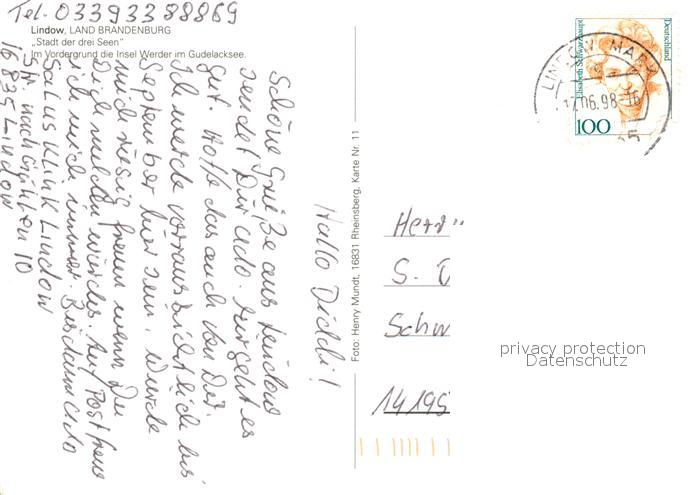 Tel. 03393388869
Lindow, LAND BRANDENBURG
„Stadt der drei Seen“
Im Vordergrund die Insel Werder im Gudelacksee.
Hallo Diddi!
Schöne Grüße aus Lindow
sendet Dir Udo. geht es
gut. Hoffe das auch von Dir.
Ich werde vorraussichtlich bis
September hier sein. Würde
mich riesig freuen wenn Du
Dich melden würdes. Auf Post freue
ich mich immer. Bis dann Udo
Salus Klink Lindow
Str. nach Gühlen 10
16835 Lindow
Foto: Henry Mundt, 16831 Rheinsberg, Karte Nr. 11
Deutschland
Elisabeth Schwarzhaupt
100
LINDOW, MARK
.06.98-16
Herr
S.
Schw
14195
privacy protection
Datenschutz